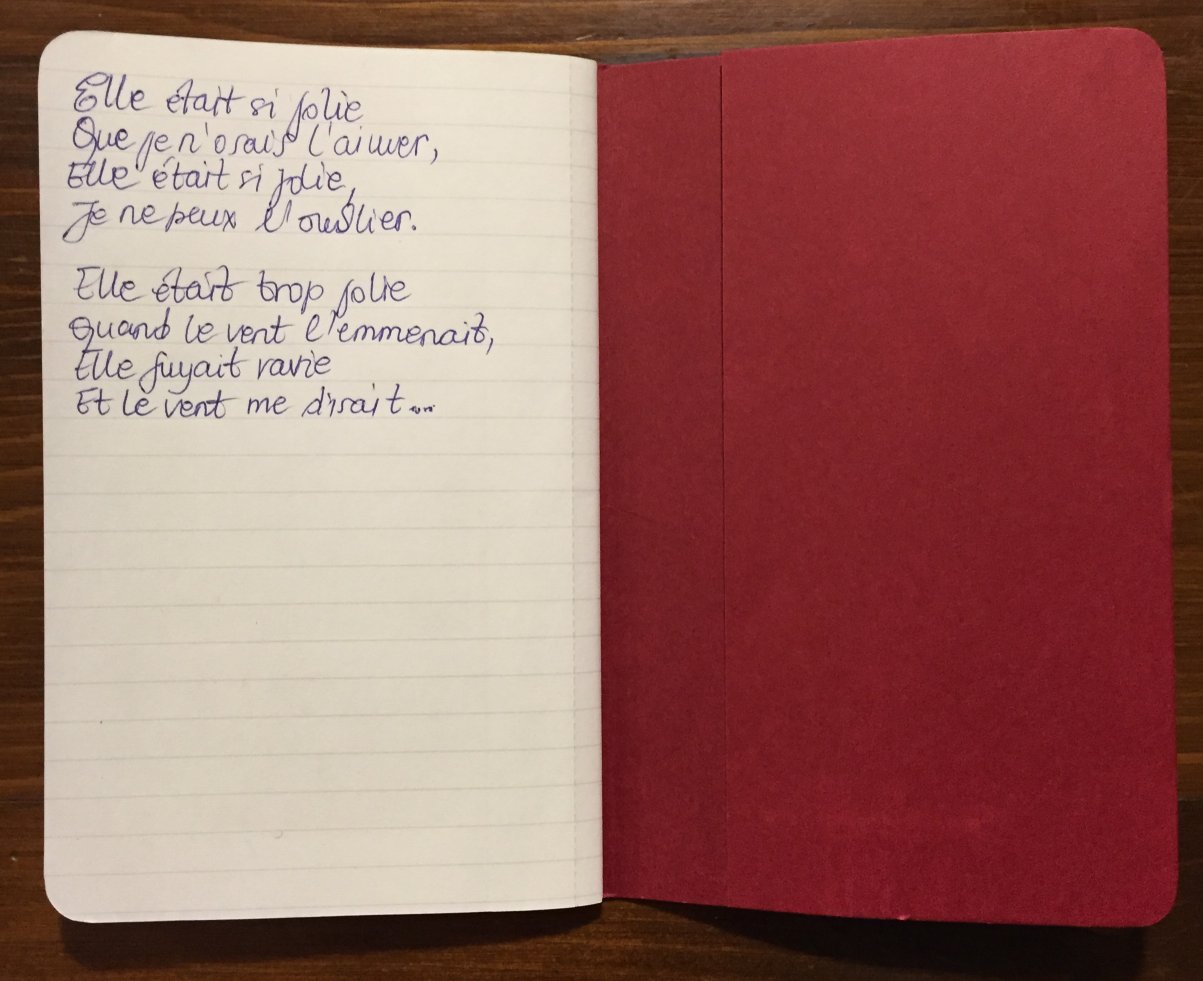 Elle était si jolie
Que je n'osais l'aimer,
Elle était si jolie,
Je ne peux l'oublier.
Elle était trop jolie
Quand le vent l'emmenait,
Elle fuyait ravie
Et le vent me disait...